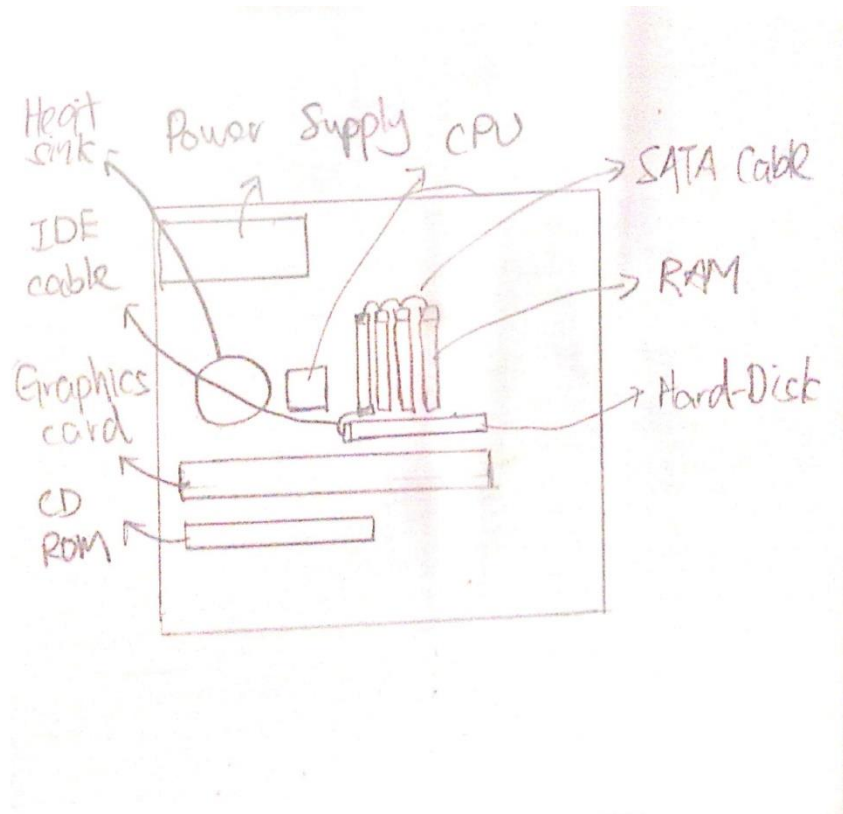 Heat
sink
Power Supply
CPU
SATA Cable
IDE
cable
RAM
Graphics
card
Hard-Disk
CD
ROM